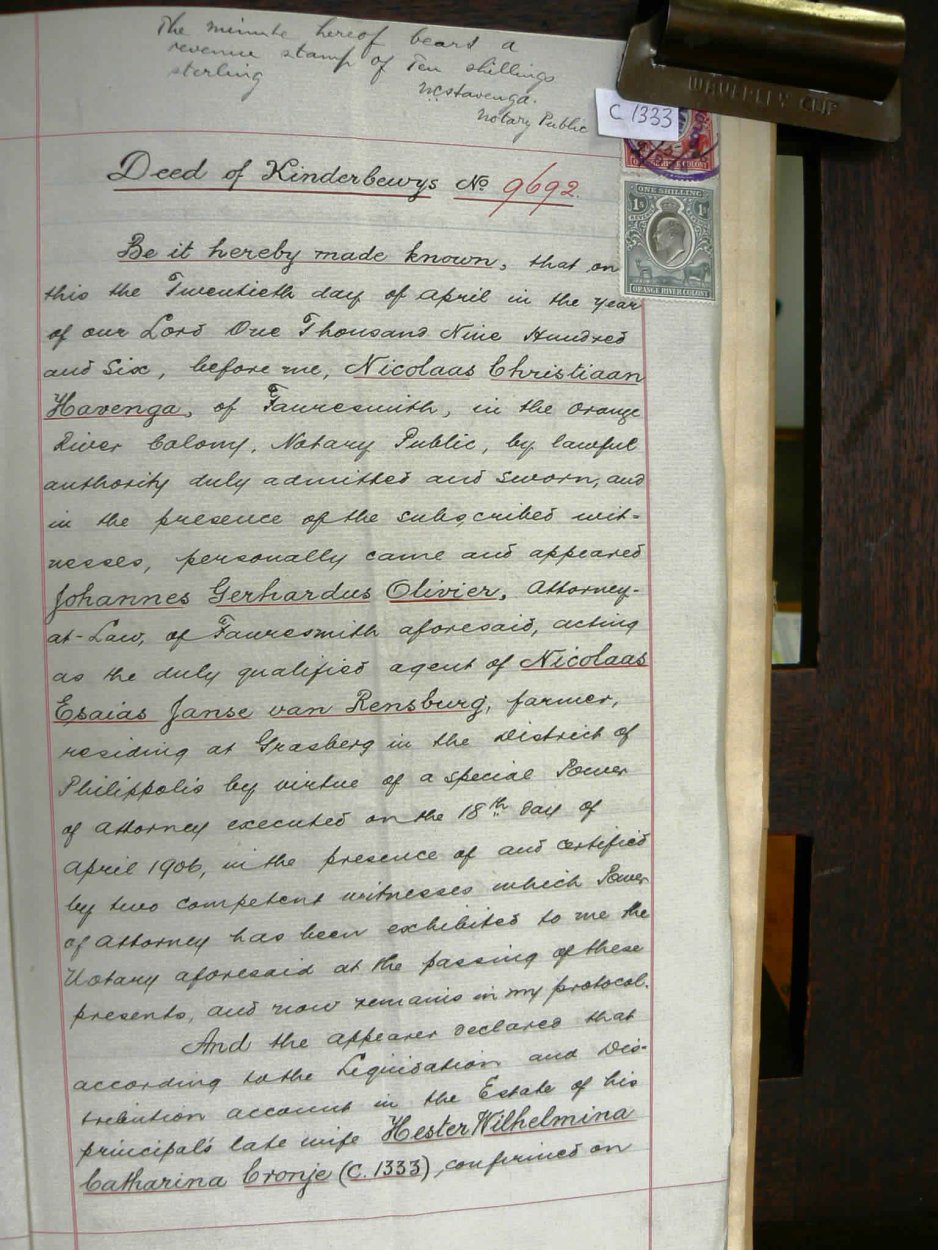 The minute hereof bears a
revenue stamp of Ten shillings
sterling
N.C. Havenga.
Notary Public
WAVERLEY CLIP
C 1333
ORANGE RIVER COLONY
ONE SHILLING
1s 1s
ORANGE RIVER COLONY
Deed of Kinderbewys No 9692.
Be it hereby made known, that on
this the Twentieth day of April in the year
of our Lord One Thousand Nine Hundred
and Six, before me, Nicolaas Christiaan
Havenga, of Fauresmith, in the Orange
River Colony, Notary Public, by lawful
authority duly admitted and sworn, and
in the presence of the subscribed wit-
nesses, personally came and appeared
Johannes Gerhardus Olivier, Attorney-
at-Law, of Fauresmith aforesaid, acting
as the duly qualified agent of Nicolaas
Esaias Janse van Rensburg, farmer,
residing at Grasberg in the District of
Philippolis by virtue of a special Power
of Attorney executed on the 18th day of
April 1906, in the presence of and certified
by two competent witnesses which Power
of Attorney has been exhibited to me the
Notary aforesaid at the passing of these
presents, and now remains in my protocol.
And the appearer declared that
according to the Liquidation and Dis-
tribution account in the Estate of his
principal's late wife Hester Wilhelmina
Catharina Cronje (C. 1333), confirmed on